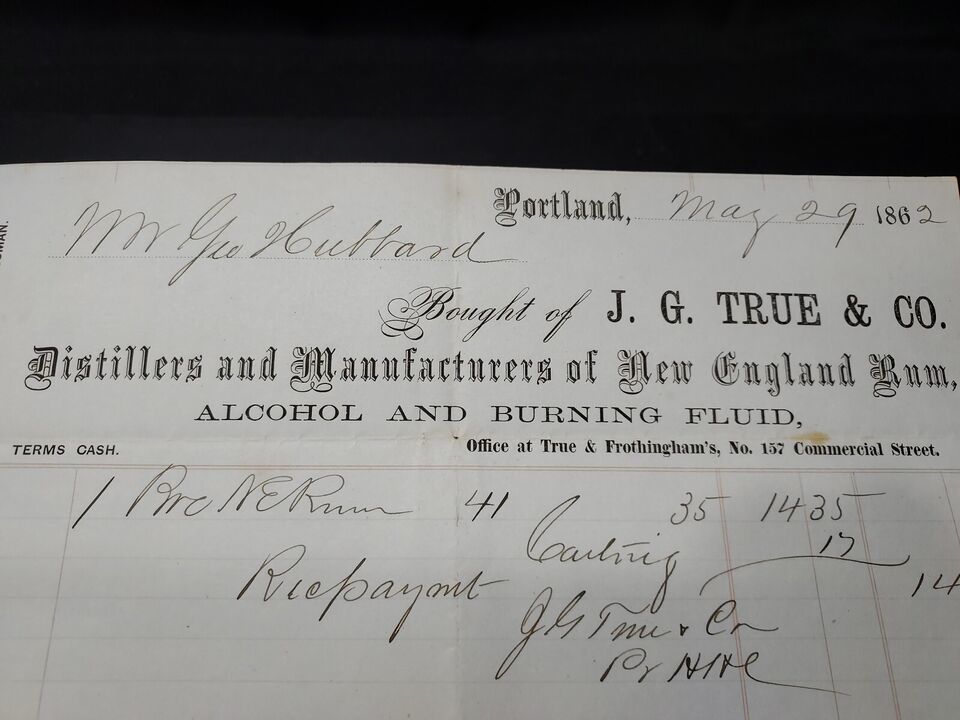 Portland, May 29 1862
Mr Geo Hubbard
Bought of J. G. TRUE & CO.
Distillers and Manufacturers of New England Rum,
ALCOHOL AND BURNING FLUID,
TERMS CASH. Office at True & Frothingham's, No. 157 Commercial Street.
1 Brl N E Rum 41 35 1435
Carting 17
Rec paymt 14
J G True & Co
Pr